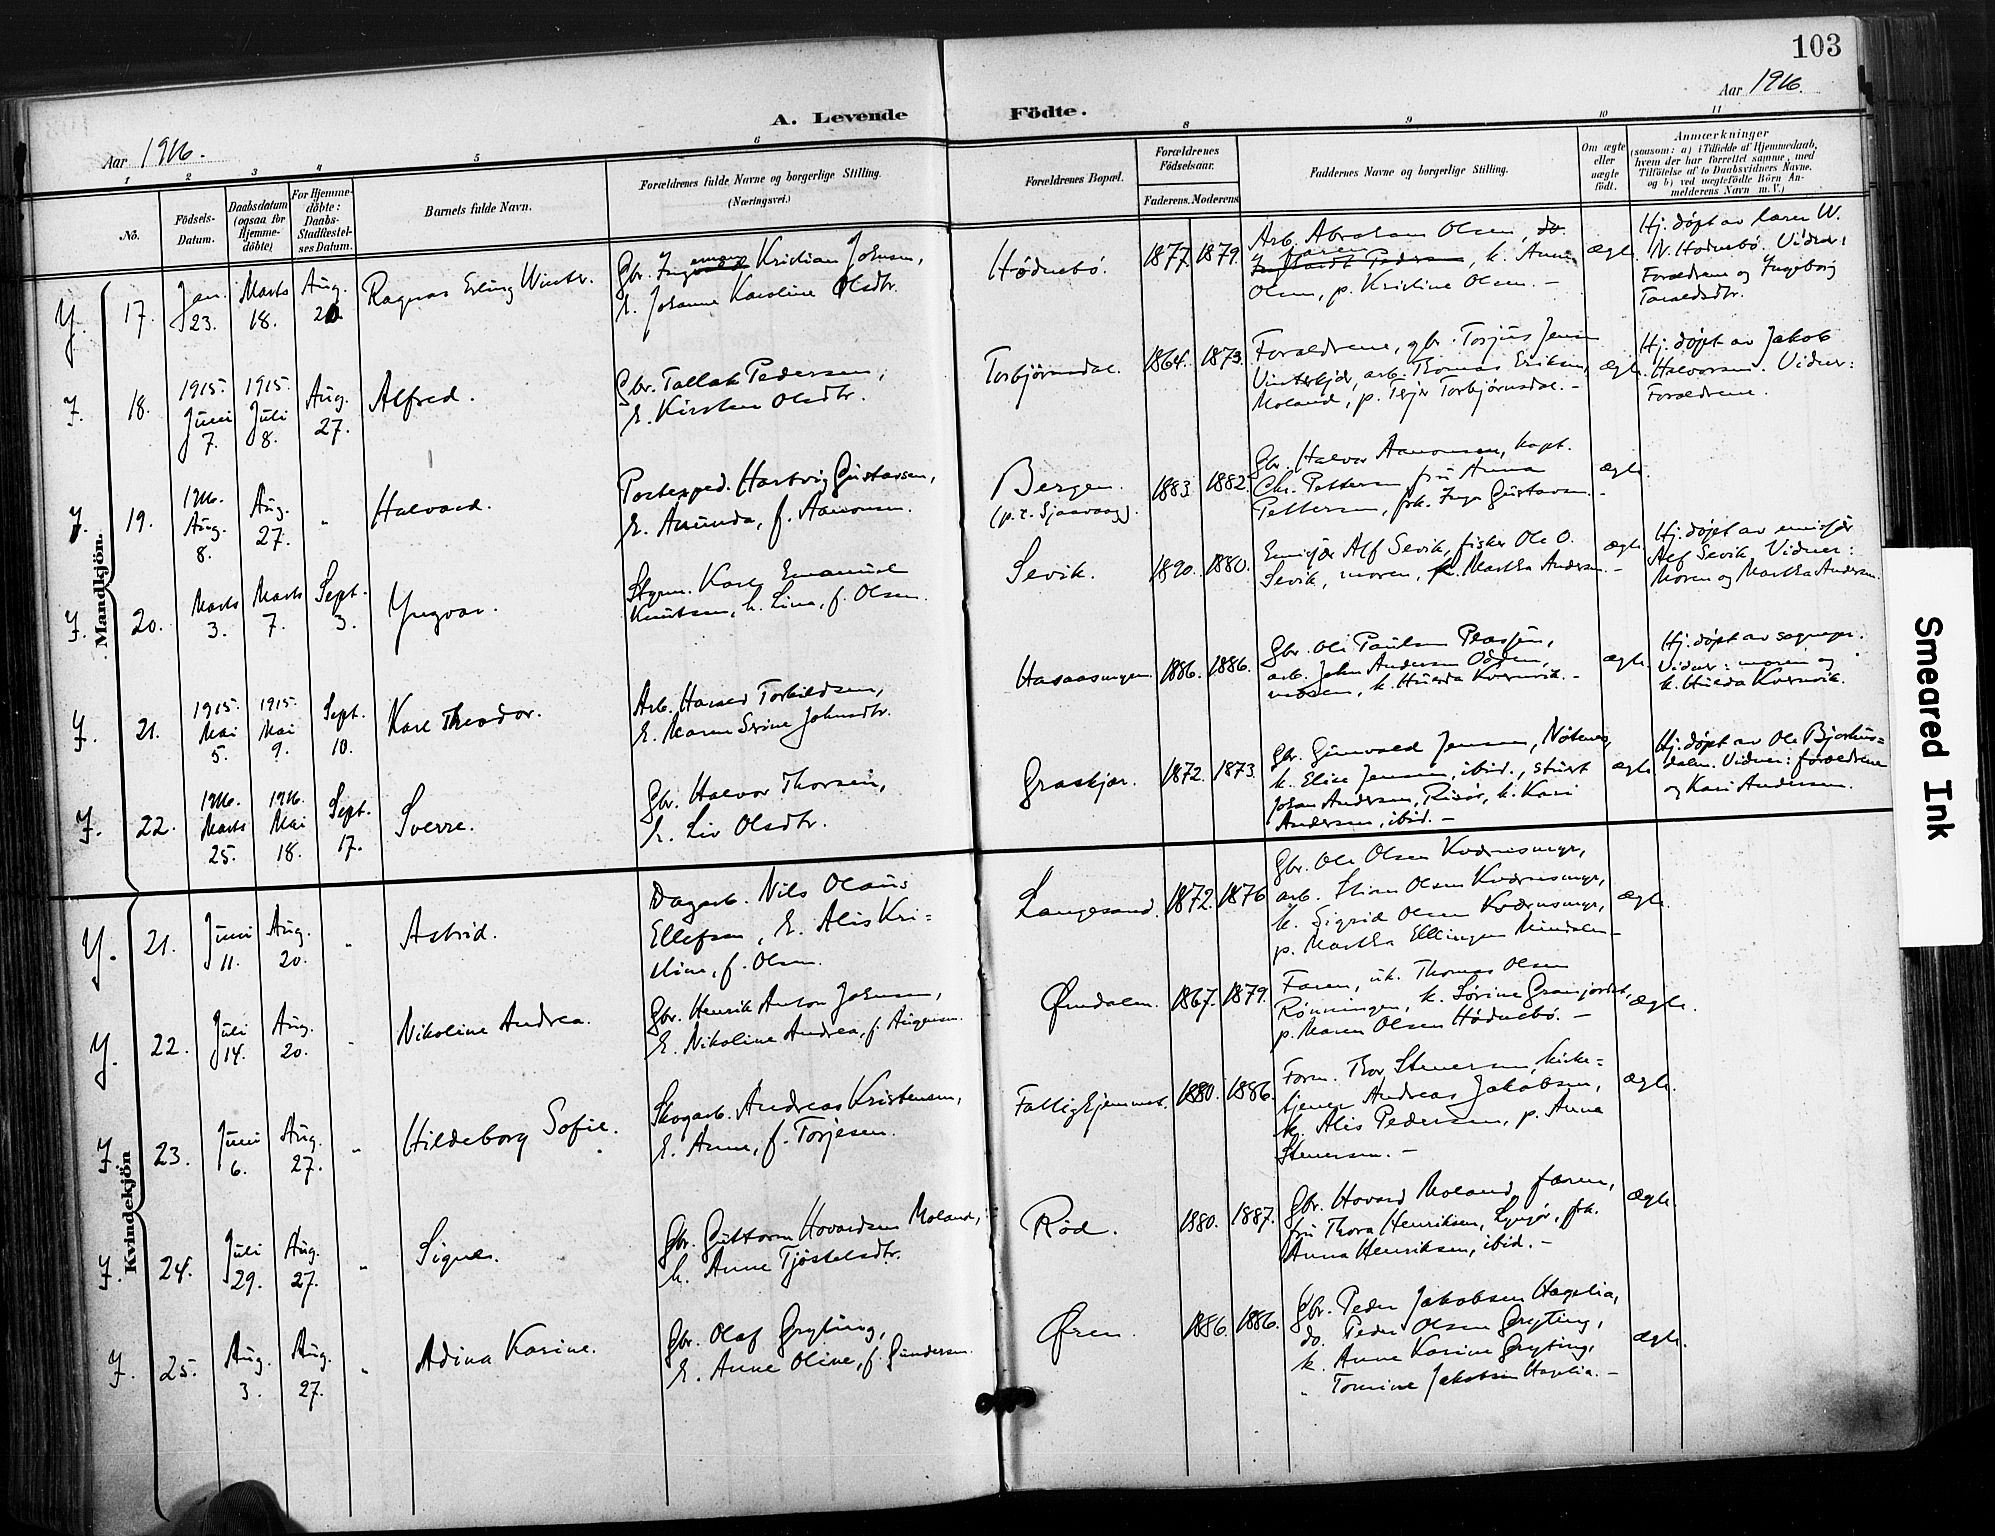 103
Aar 1916.
A. Levende Födte.
Aar 1916.
1 2 3 4 5 6 8 9 10 11
No.
Födsels-
Datum.
Daabsdatum
(ogsaa for
Hjemme-
döbte)
For Hjemme-
döbte:
Daabs-
Stadfæstel-
ses Datum.
Barnets fulde Navn.
Forældrenes fulde Navne og borgerlige Stilling.
(Næringsvei.)
Forældrenes Bopæl.
Forældrenes
Födselsaar.
Faderens. Moderens.
Faddernes Navne og borgerlige Stilling.
Om ægte
eller
uægte
født.
Anmærkninger
(saasom: a) i Tilfælde af Hjemmedaab,
hvem der har forrettet samme, med
Tilföielse af to Daabsvidners Navne,
og b) ved uægtefödte Börn An-
melderens Navn m. V.)
Mandkjön.
17. Jan. 23. Marts 18. Aug. 20. Ragnar Erling Winter.
Gbr. Kristian Johnsen,
h. Johanne Karoline Olsdtr.
Hødnebø. 1877. 1879.
Arb. Abraham Olsen, do.
faren, k. Anne
Olsen, p. Kristine Olsen. –
ægte
Hj. døpt av lærer W.
N. Hødnebø. Vidner:
Forældrene og Ingeborg
Taraldsdtr.
18. 1915. Juni 7. 1915. Juli 8. Aug. 27. Alfred.
Gbr. Tallak Pedersen,
h. Kirsten Olsdtr.
Torbjørnsdal. 1864. 1873.
Forældrene, gbr. Torjus Jensen
Vinterkjær, arb. Thomas Eriksen,
Moland, p. Terje Torbjørnsdal. –
ægte.
Hj. døpt av Jakob
Halvorsen. Vidner:
Forældrene.
19. 1916. Aug. 8. Aug. 27. " Halvard.
Postexped. Hartvig Gustavsen,
h. Amunda, f. Aanonsen.
Bergen.
1883. 1882.
Gbr. Halvor Aanonsen, kapt.
Chr. Pettersen, fru Anna
Pettersen, frk. Inga Gustavsen. –
ægte
20. Marts 3. Marts 7. Sept. 3. Yngvar.
Styrm. Karl Emanuel
Knutsen, h. Lina, f. Olsen.
Sevik. 1890. 1880.
Emisjær Alf Sevik, fisker Ole O.
Sevik, moren, k. Martha Andersen. –
ægte
Hj. døpt av emisjær
Alf Sevik. Vidner:
Moren og Martha Andersen.
21. 1915. Mai 5. 1915. Mai 9. Sept. 10. Karl Theodor.
Arb. Harald Torkildsen,
h. Maren Serine Johnsdtr.
Hasaasmyren. 1886. 1886.
Gbr. Ole Paulsen Plassen,
arb. John Andersen Odden,
moren, k. Hulda Kvernvik. –
ægte
Hj. døpt av sognepr.
Vidner: moren og
k. Hulda Kvernvik.
22. 1916. Marts 25. 1916. Mai 18. Sept. 17. Sverre.
Gbr. Halvor Thorsen,
h. Liv Olsdtr.
Graskjær. 1872. 1873.
Gbr. Gunvald Jensen,
k. Elise Jensen, ibid., stuert
Johan Andersen, Risør, k. Kari
Andersen, ibid. –
ægte
Hj. døpt av Ole Bjorhus=
dalen. Vidner: forældrene
og Kari Andersen.
Kvindekjön
21. Juni 11. Aug. 20. " Astrid.
Dagarb. Nils Olaus
Ellefsen, h. Alis Kri=
stine, f. Olsen.
Langesand. 1872. 1876
Gbr. Ole Olsen Kvernsmyr,
arb. Olsen Kvernsmyr,
k. Sigrid Olsen Kvernsmyr,
p. Martha Ellingsen
ægte.
22. Juli 14. Aug. 20. Nikoline Andrea.
Gbr. Henrik Anton Johnsen,
h. Nikoline Andrea, f. Augensen.
Øindalen. 1867. 1879.
Faren, uk. Thomas Olsen
Rønningen, k. Sørine Granjordet,
p. Maren Olsen Hødnebø. –
ægte.
23. Juni 6. Aug. 27. " Hildeborg Sofie.
Skogarb. Andreas Kristensen,
h. Anne, f. Torjesen.
Fattighjemmet. 1880. 1886.
Form. Thor Stenersen, kirke=
tjener Andreas Jakobsen,
k. Alis Pedersen, p. Anna
Stenersen. –
ægte.
24. Juli 29. Aug. 27. " Signe.
Gbr. Guttorm Hovardsen Moland,
h. Anne Tjøstelsdtr.
Rød. 1880. 1887.
Gbr. Hovard Moland, faren,
fru Thora Henriksen, Lyngør, frk.
Anna Henriksen, ibid. –
ægte.
25. Aug. 3. Aug. 27. " Adina Karine.
Gbr. Olaf Gryting,
h. Anne Oline, f. Gundersen.
Øren. 1886. 1886.
Gbr. Peder Jakobsen Hagelia,
do. Peder Olsen Gryting,
k. Anne Karine Gryting,
" Tomine Jakobsen Hagelia. –
ægte.
Smeared Ink